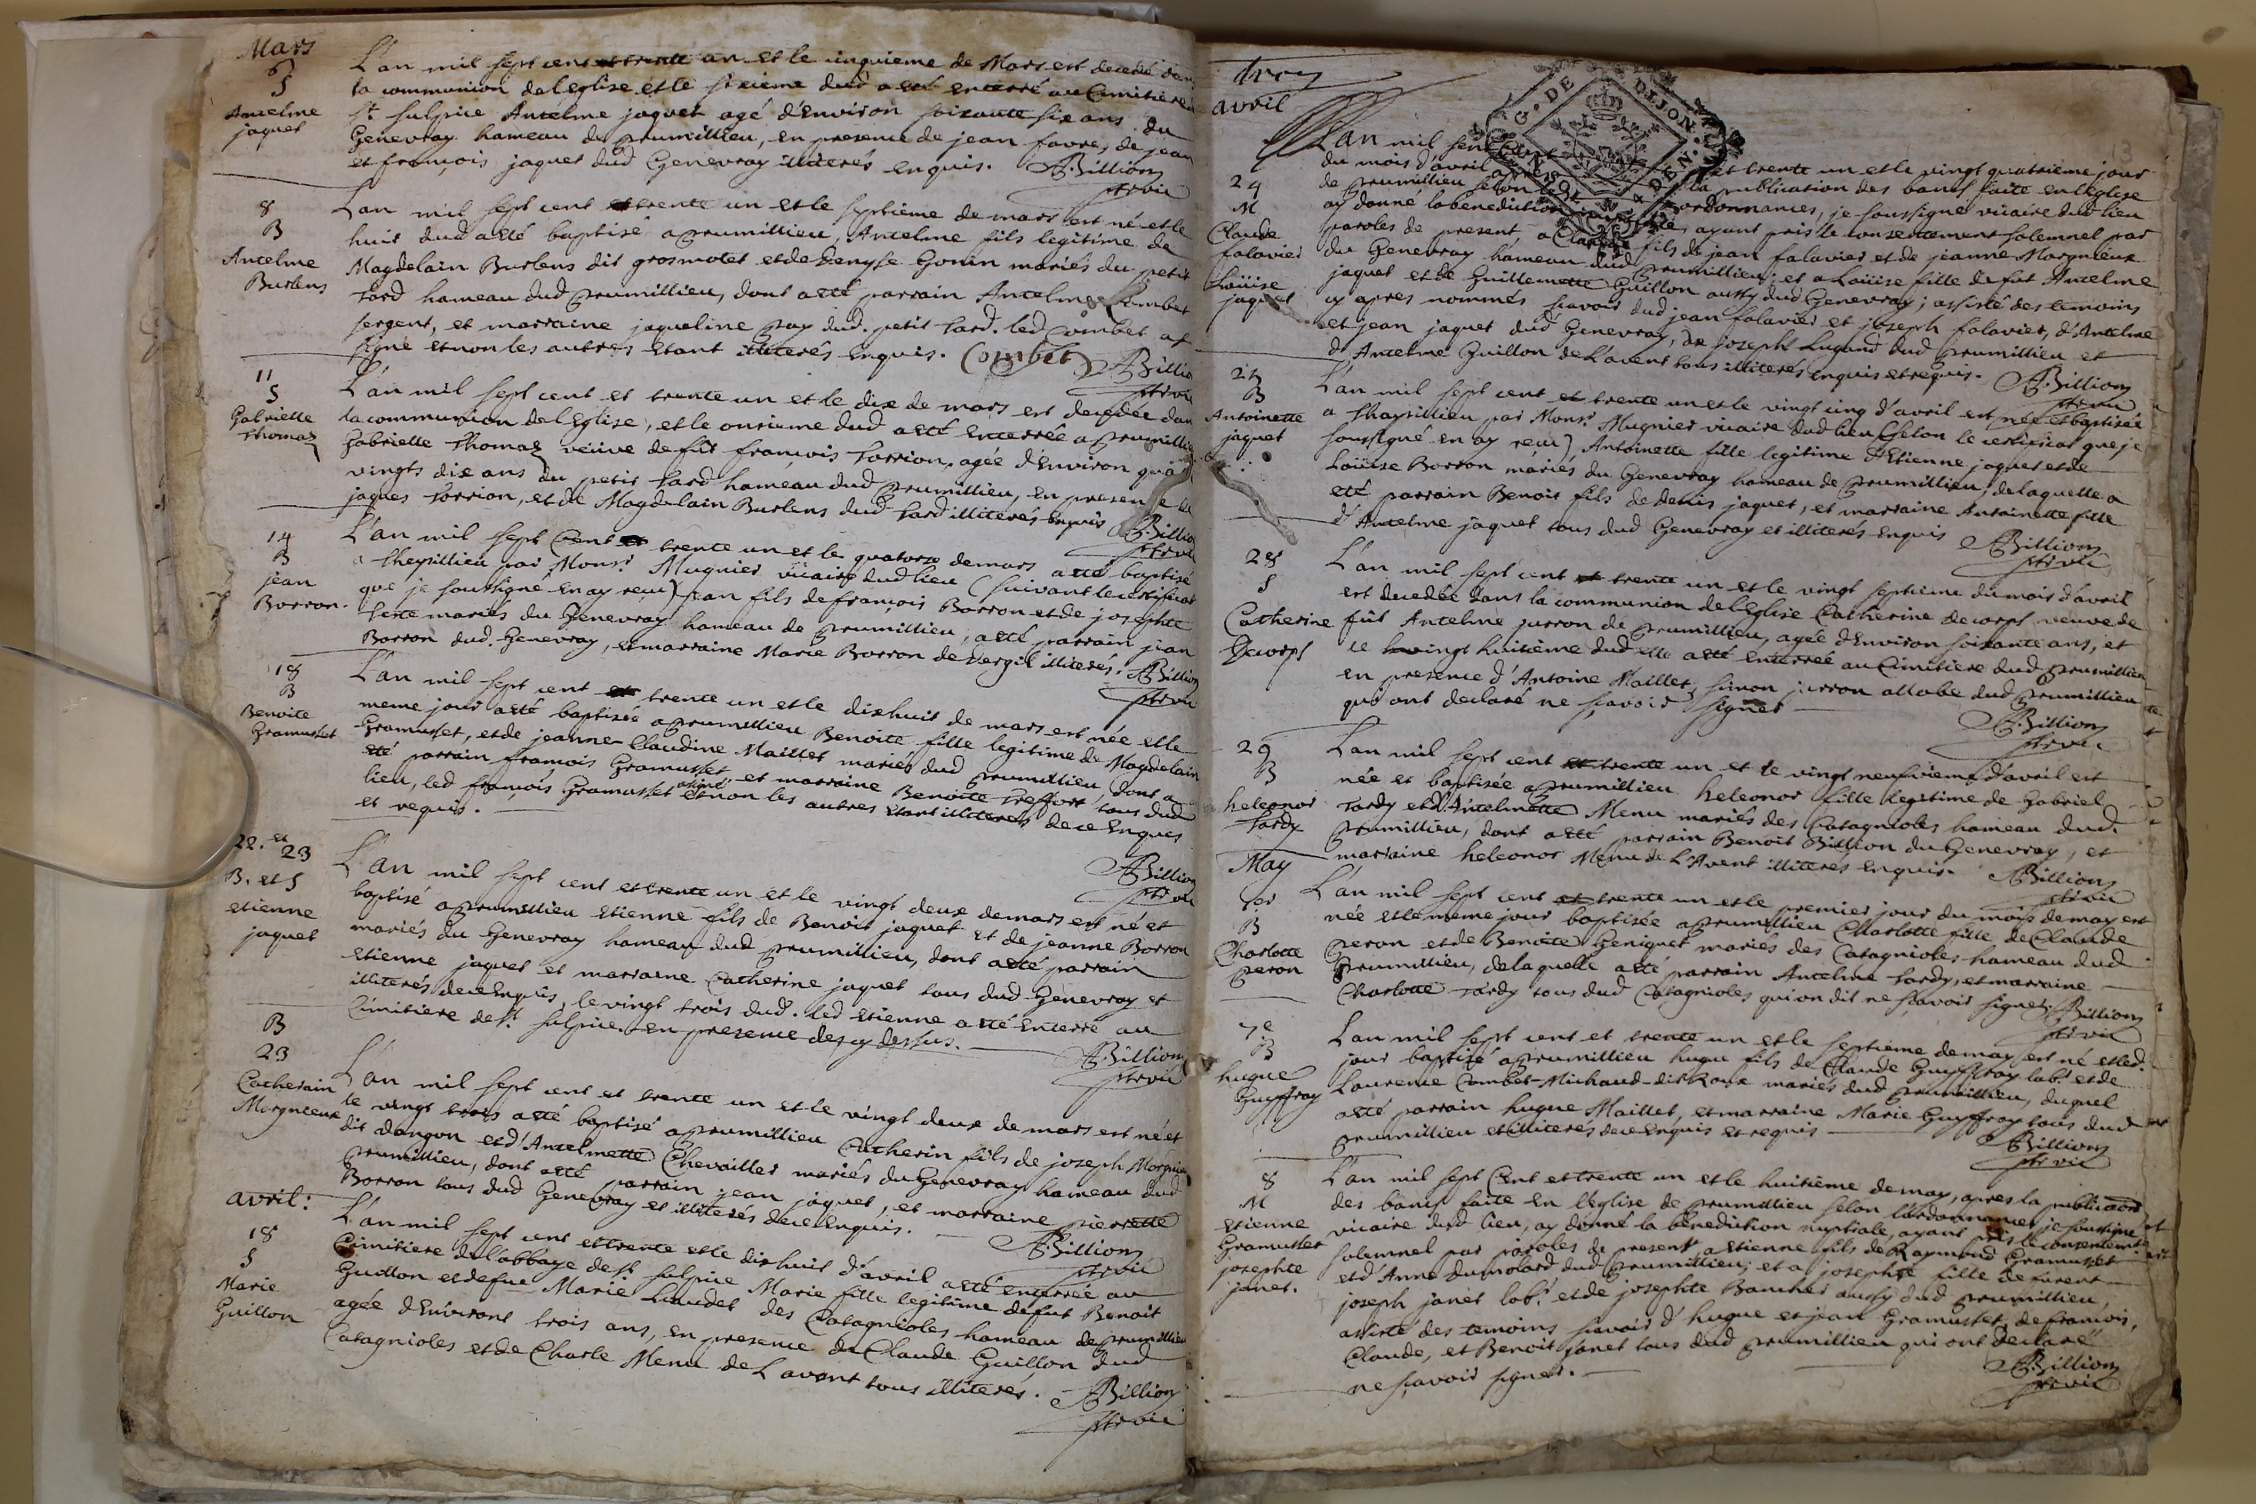 Mars
6
S
Antelme
jaquet
L'an mil sept cent et trente un et le cinquieme de Mars est decedé dans
la communion de l'Eglise et le sixieme dud a esté enterré au Cimitiere
St. Sulpice Antelme jaquet agé d'Environ soixante six ans du
Genevray hameau de prumillieu, en presence de jean favre, de jean
et françois jaquet dud Genevray illiterés enquis. Billion
ptre vic
8
B
Antelme
Burlens
L'an mil sept cent et trente un et le septieme de mars est né et le
huit dud a esté baptisé a prumillieu, Antelme fils legitime de
Magdelain Burlens dit grosmolet et de Denyse Gonin mariés du petit
Tard hameau dud prumillieu, dont a esté parrain Antelme Combet
sergent, et marraine jaqueline pay dud. petit Tard. led Combet a
signé et non les autres estant illiterés enquis. Combet Billion
ptre vic
11
S
Gabrielle
Thomaz
L'an mil sept cent et trente un et le dix de mars est decedée dans
la communion de l'Eglise, et le onzieme dud a esté enterrée a prumillieu
Gabrielle Thomaz veuve de fût françois Torrion, agée d'Environ quatre
vingts dix ans du petit Tard hameau dud prumillieu, en presence de
jaques Torrion, et de Magdelain Burlens dud Tard illiterés enquis Billion
ptre vic
14
B
jean
Borron.
L'an mil sept Cent et trente un et le quatorze de mars a esté baptisé
a Cheysillieu par Monsr. Mugnier vicaire dud lieu (suivant le certificat
que je soussigné en ay reçu) jean fils de françois Borron et de josephte
Serte mariés du Genevray hameau de prumillieu, a esté parrain jean
Borron dud. Genevray, et marraine Marie Borron de Dergit illiterés. Billion
ptre vic
18
B
Benoite
Gramusset
L'an mil sept cent et trente un et le dixhuit de mars est née et le
meme jour a esté baptisée a prumillieu Benoite fille legitime de Magdelain
Gramusset, et de jeanne Claudine Maillet mariés dud prumillieu dont a
esté parrain françois Gramusset, et marraine Benoite Treffort tous dud
lieu, led françois Gramusset a signé et non les autres estant illiterés de ce Enquis
et requis.
Billion
ptre vic
22. et 23
B. et S
etienne
jaquet
L'an mil sept cent et trente un et le vingt deux de mars est né et
baptisé a prumillieu etienne fils de Benoit jaquet et de jeanne Borron
mariés du Genevray hameau dud prumillieu, dont a esté parrain
etienne jaquet et marraine Catherine jaquet tous dud Genevray et
illiterés de ce Enquis, le vingt trois dud. led etienne a esté enterré au
Cimitiere de St. Sulpice en presence des cy dessus.
Billion
ptre vic
B
23
Catherin
Morgnieux
L'an mil sept cent et trente un et le vingt deux de mars est né et
le vingt trois a esté baptisé a prumillieu Catherin fils de joseph Morgnieux
dit dangon et d'Antelmette Chevailler mariés du Genevray hameau dud
prumillieu, dont a esté parrain jean jaquet, et marraine pierrette
Borron tous dud Genevray et illiterés de ce Enquis.
Billion
ptre vic
avril:
18
S
Marie
Guillon
L'an mil sept cent et trente et le dixhuit d'avril a esté enterrée au
Cimitiere de l'abbaye de St. Sulpice Marie fille legitime de fut Benoit
Guillon et de fue Marie Laudet des Catagnioles hameau de prumillieu
agée d'Environt trois ans, en presence de Claude Guillon dud
Catagnioles et de Charle Menu de Lavant tous illiterés. Billion
ptre vic
Trez
avril
G. DE DIJON
DEN.
24
M
Claude
falavier
Louise
jaquet
L'an mil sept Cent et trente un et le vingt quatrieme jour
du mois d'avril après la publication des bancs faite en l'Eglise
de prumillieu selon les ordonnances, je soussigné vicaire dud lieu
ay donné la benediction nuptiale, ayant pris le consentement solemnel par
paroles de present a Claude fils de jean falavier et de jeanne Morgnieux
du Genevray hameau dud prumillieu; et a Louise fille de fut Antelme
jaquet et de Guillemette Guillon aussy dud Genevray; assisté des temoins
cy apres nommés sçavoir dud jean falavier et joseph falavier, d'Antelme
et jean jaquet dud Genevray, de joseph Lugand dud prumillieu et
de Antelme Guillon de Lavent tous illiterés enquis et requis. Billion
ptre vic
25
B
Antoinette
jaquet
L'an mil sept cent et trente un et le vingt cinq d'avril est née et baptisée
a Cheysillieu par Monsr. Mugnier vicaire dud lieu (selon le certificat que je
soussigné en ay reçu) Antoinette fille legitime d'Etienne jaquet et de
Louise Borron mariés du Genevray hameau de prumillieu, de laquelle a
esté parrain Benoit fils de denis jaquet, et marraine Antoinette fille
d'Antelme jaquet tous dud Genevray et illiterés enquis Billion
ptre vic
28
S
Catherine
Decorps
L'an mil sept cent et trente un et le vingt septieme du mois d'avril
est decedée dans la communion de l'Eglise Catherine decorps veuve de
fût Antelme jurron de prumillieu, agée d'Environ soixante ans, et
le vingt huitieme dud elle a esté enterrée au Cimitiere dud prumillieu
en presence d'Antoine Maillet, simon jurron allobe dud prumillieu
qui ont declaré ne sçavoir signer
Billion
ptre vic
29
B
heleonor
Tardy
L'an mil sept cent et trente un et le vingt neufvieme d'avril est
née et baptisée a prumillieu heleonor fille legitime de Gabriel
Tardy et d'Antelmette Menu mariés des Catagnioles hameau dud.
prumillieu, dont a esté parrain Benoit Billion du Genevray, et
marraine heleonor Menu de L'Avent illiterés enquis. Billion
ptre vic
May
1er
B
Charlotte
peron
L'an mil sept cent et trente un et le premier jour du mois de may est
née et le meme jour baptisée a prumillieu Charlotte fille de Claude
peron et de Benoite Geniquet mariés des Catagnioles hameau dud
prumillieu, de laquelle a esté parrain Antelme Tardy, et marraine
Charlotte Tardy tous dud Catagnioles qui on dit ne sçavoir signer. Billion
ptre vic
7e
B
hugue
Guyffray
L'an mil sept cent et trente un et le septieme de may est né et led.
jour baptisé a prumillieu hugue fils de Claude Guyffray labr. et de
Laurence Combet-Michaud-dit Roux mariés dud prumillieu, duquel
a esté parrain hugue Maillet, et marraine Marie Guyffray tous dud
prumillieu et illiterés de ce Enquis et requis
Billion
ptre vic
8
M
etienne
Gramusset
josephte
janet.
L'an mil sept Cent et trente un et le huitieme de may, apres la publication
des bancs faite en l'Eglise de prumillieu selon l'ordonnance, je soussigné
vicaire dud lieu, ay donné la benediction nuptiale, ayant pris le consentement
solemnel par paroles de present, a etienne fils de Raymond Gramusset
et d'Anne Dumolard dud prumillieu; et a josephte fille de furent
joseph janet labr. et de josephte Baucher aussy dud prumillieu,
assisté des temoins sçavoir d'hugue et jean Gramusset, de françois,
Claude, et Benoit janet tous dud prumillieu qui ont declaré
ne sçavoir signer.
Billion
ptre vic